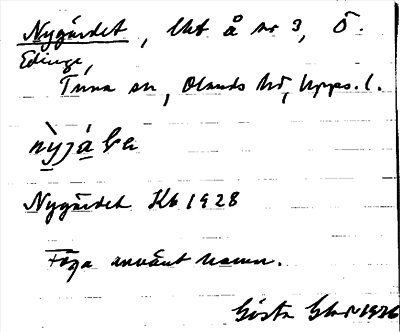 Nygärdet, lht å nr 3, Ö.
Edinge,
Tuna sn, Olands hd, Upps. l.
nỳjá
Nygärdet Kb 1928
Föga använt namn.
Gösta 1926